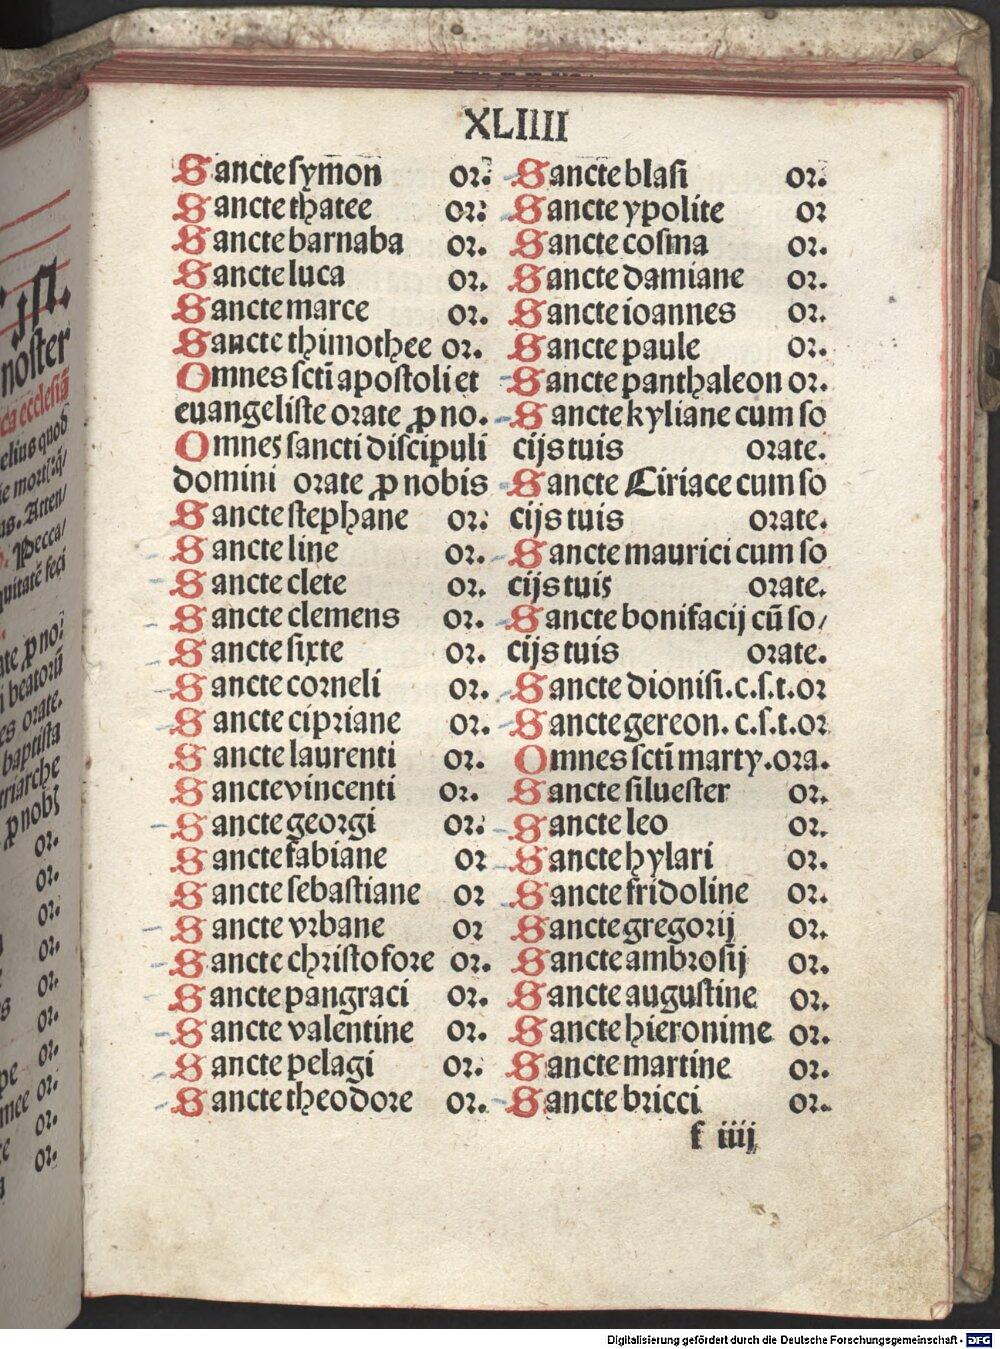 XLIIII
Sancte symon or:
Sancte thatee or:
Sancte barnaba or.
Sancte luca or.
Sancte marce or.
Sancte thimothee or.
Omnes scti apostoli et
euangeliste orate p no.
Omnes sancti discipuli
domini orate p nobis
Sancte stephane or:
Sancte line or.
Sancte clete or.
Sancte clemens or.
Sancte sixte or.
Sancte corneli or.
Sancte cipriane or.
Sancte laurenti or.
Sancte vincenti or.
Sancte georgi or:
Sancte fabiane or
Sancte sebastiane or
Sancte vrbane or
Sancte christofore or.
Sancte pangraci or.
Sancte valentine or.
Sancte pelagi or.
Sancte theodore or.
Sancte blasi or.
Sancte ypolite or
Sancte cosma or.
Sancte damiane or.
Sancte ioannes or.
Sancte paule or.
Sancte panthaleon or.
Sancte kyliane cum so
cijs tuis orate.
Sancte Ciriace cum so
cijs tuis orate.
Sancte maurici cum so
cijs tuis orate.
Sancte bonifacij cū so/
cijs tuis orate.
Sancte dionisi. c. s. t. or
Sancte gereon. c. s. t. or
Omnes scti marty. ora.
Sancte siluester or.
Sancte leo or.
Sancte hylari or.
Sancte fridoline or.
Sancte gregorij or.
Sancte ambrosij or.
Sancte augustine or.
Sancte hieronime or.
Sancte martine or.
Sancte bricci or.
f iiij
Digitalisierung gefördert durch die Deutsche Forschungsgemeinschaft - DFG